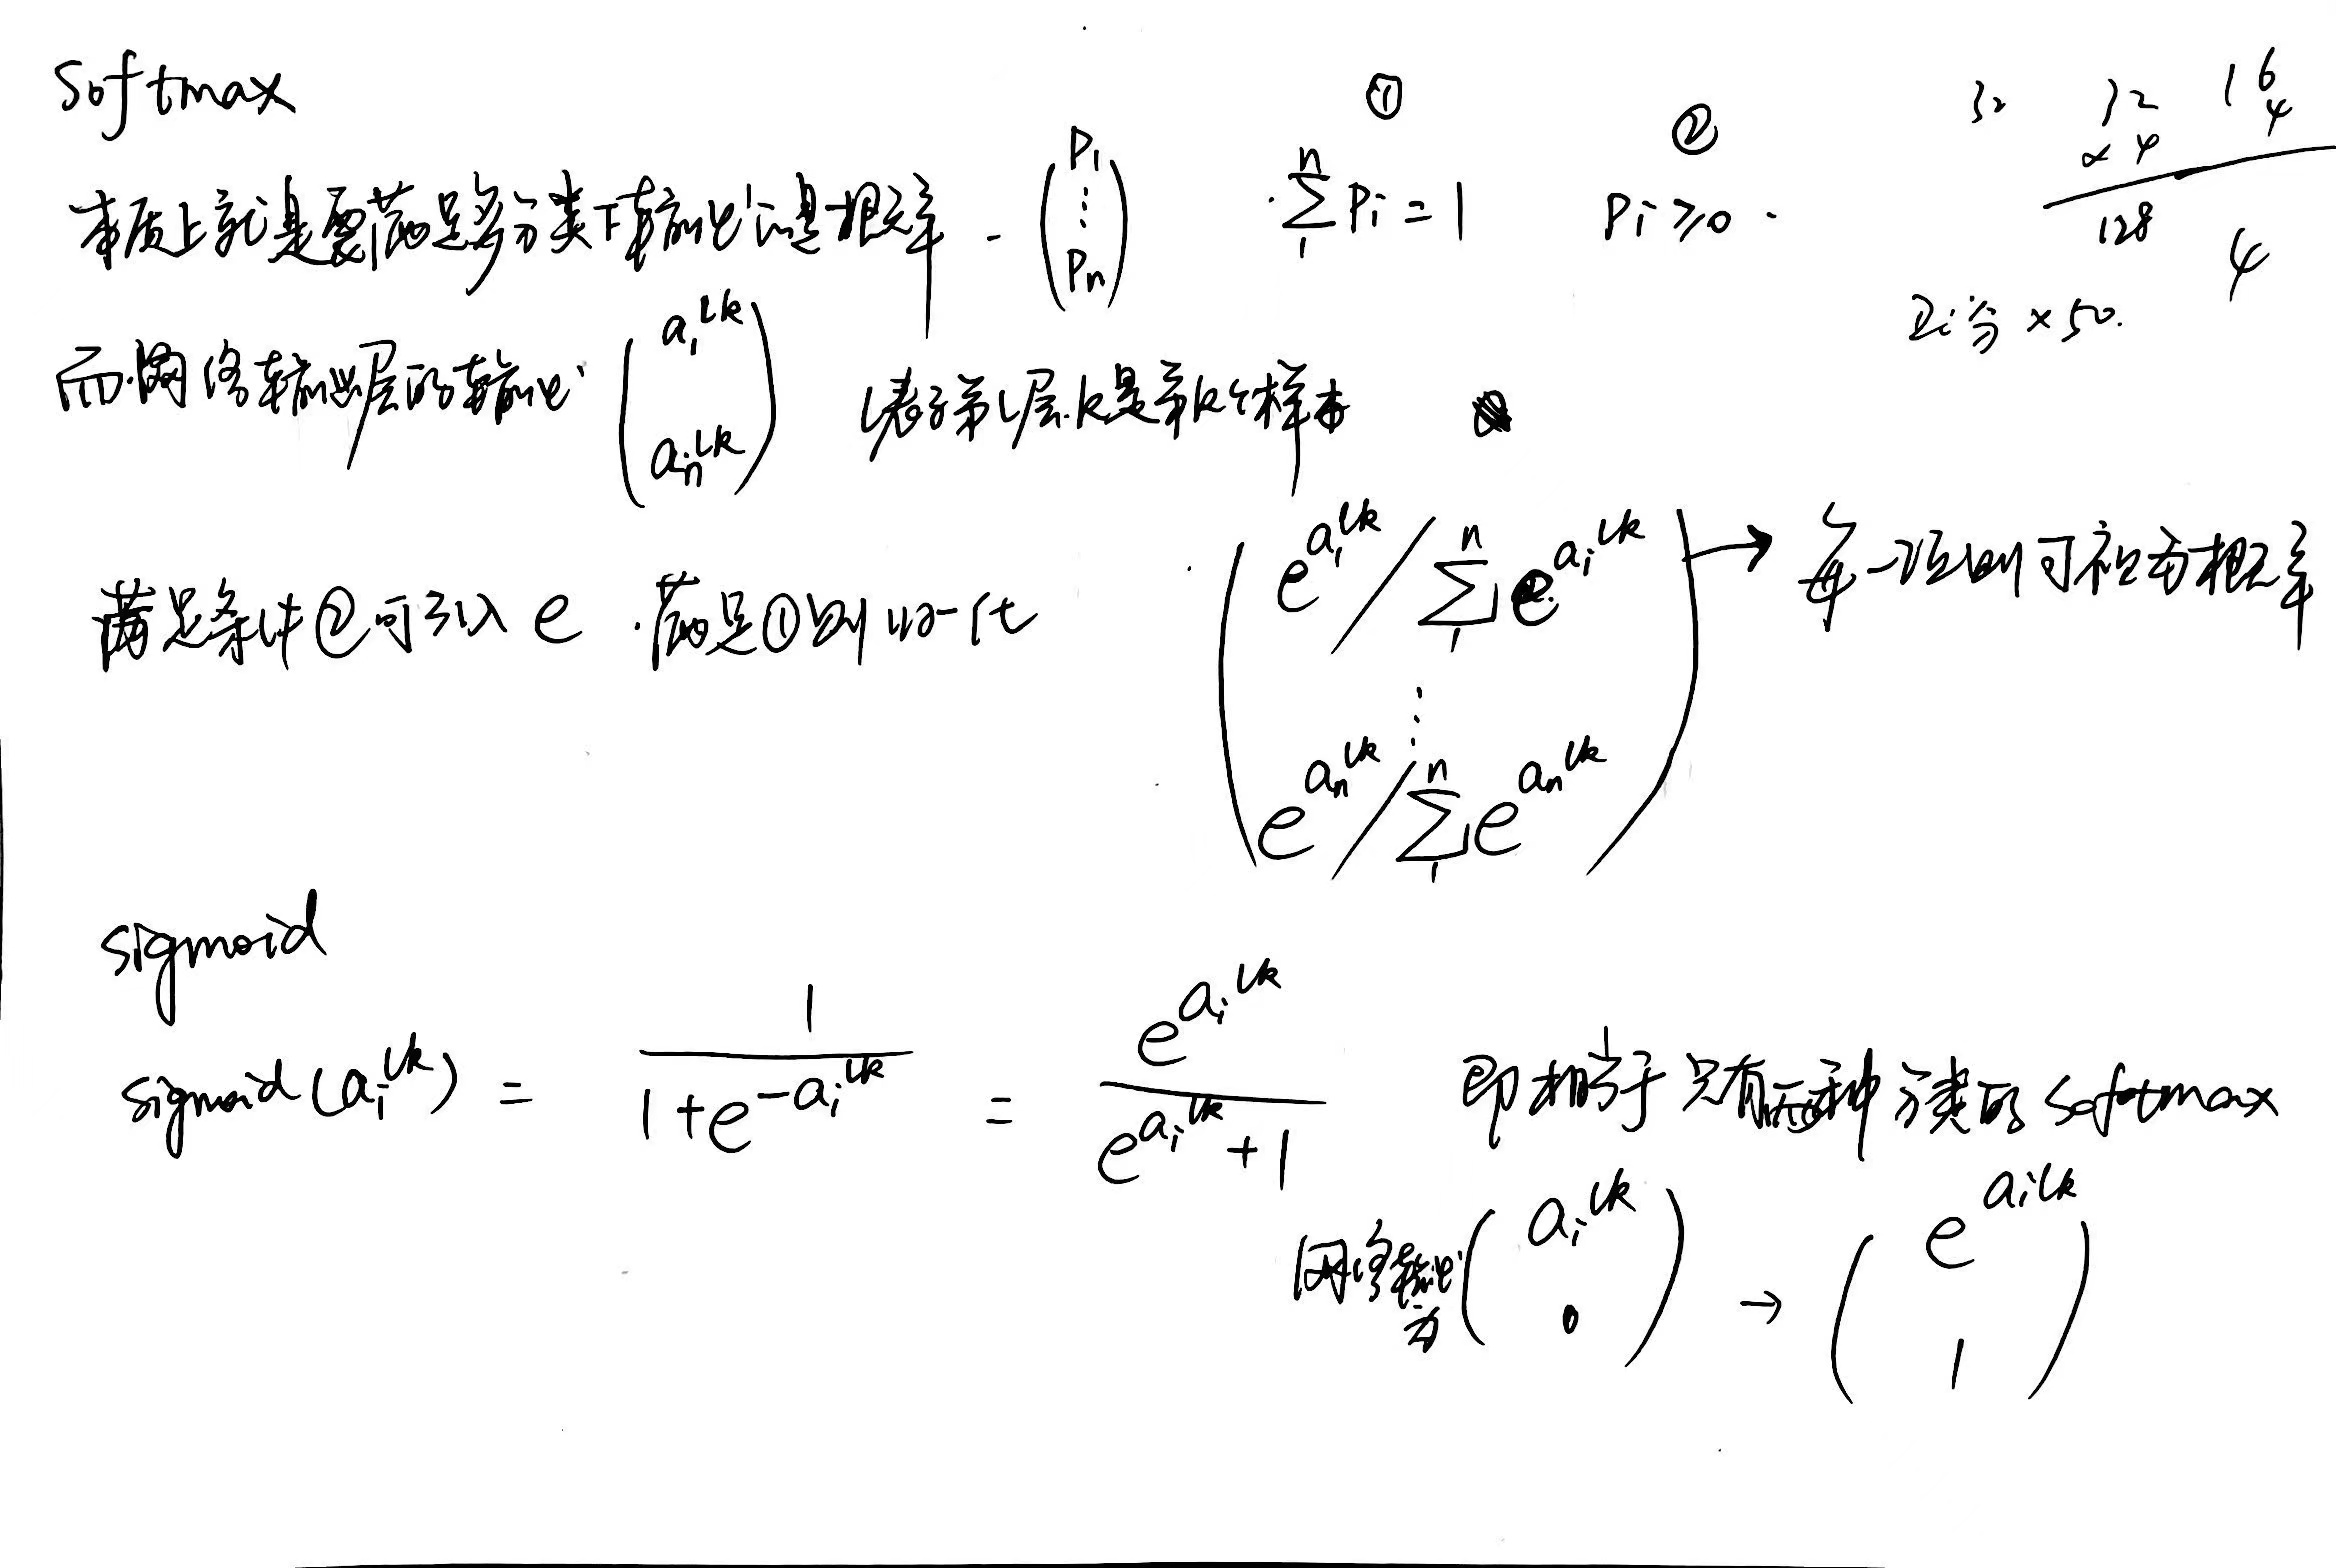 softmax
本质上就是要满足多分类下输出的是概率. (P₁ ⋮ Pₙ) ① ∑₁ⁿ Pᵢ = 1 ② Pᵢ ≥ 0.
32 32 16
×4 4
128 4
积分 × 50.
而网络输出层的输出 (a₁^{lk} aₙ^{lk}) l表示第l层.k是第k个样本
满足条件②可引入 e .满足①则归一化 (e^{a₁^{lk}} / ∑₁ⁿ e^{aᵢ^{lk}} ⋮ e^{aₙ^{lk}} / ∑₁ⁿ e^{aₙ^{lk}}) → 每一项则可视为概率
sigmoid
sigmoid(aᵢ^{lk}) = 1 / (1 + e^{-aᵢ^{lk}}) = e^{aᵢ^{lk}} / (e^{aᵢ^{lk}} + 1) 即相当于只有两种分类的 softmax
网络输出为 (aᵢ^{lk} 0) → (e^{aᵢ^{lk}} 1)